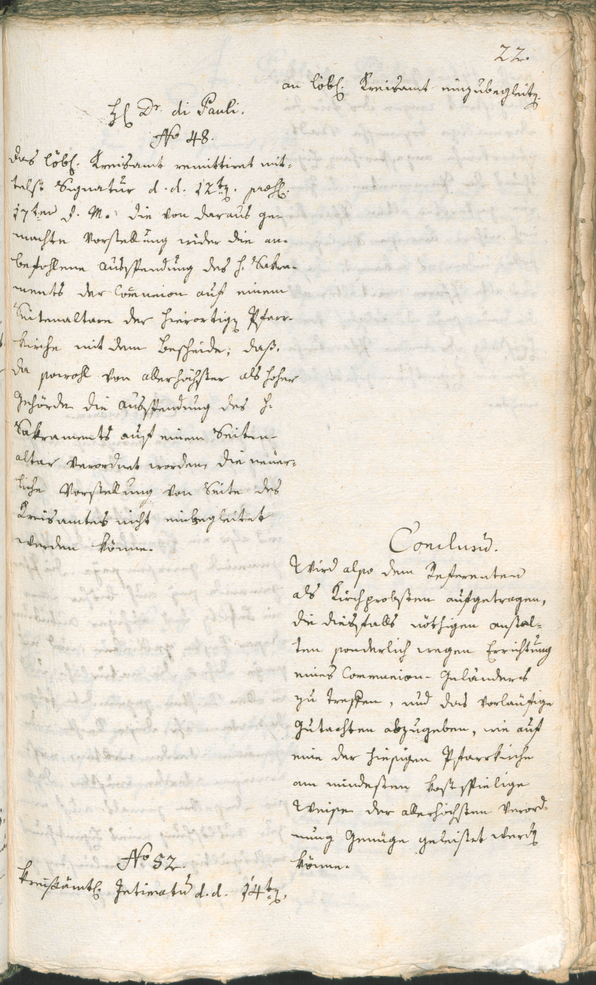 22.
an löbl. Kreisamt einzubegleit̅
H. Dr. di Pauli.
No 48.
Das löbl. Kreisamt remittirt mit-
telst Signatur d. d. 12t̅ praes.
17ten d. M. die von daraus ge-
machte Vorstellung wider die an-
befohlene Ausspendung des h. Sakra-
ments der Com̅union auf einem
Seitenaltare der hierortig̅ Pfarr-
kirche mit dem Bescheide; daß,
da sowohl von allerhöchster als hoher
Behörde die Ausspendung des h.
Sakraments auf einem Seiten-
altar verordnet worden, die neuer-
liche Vorstellung von Seite des
Kreisamtes nicht einbegleitet
werden könne.
Conclusũ.
Wird also dem Referenten
als Kirchprobsten aufgetragen,
die diesfalls nöthigen Anstal-
ten sonderlich wegen Errichtung
eines Communion-Geländers
zu treffen, und das vorläufige
Gutachten abzugeben, wie auf
eine der hiesigen Pfarrkirche
am mindesten kostspielige
Weise der allerhöchsten Verord-
nung Genüge geleistet werd̅
könne.
No 52.
Kreisämtl. Intimatũ d. d. 14t̅